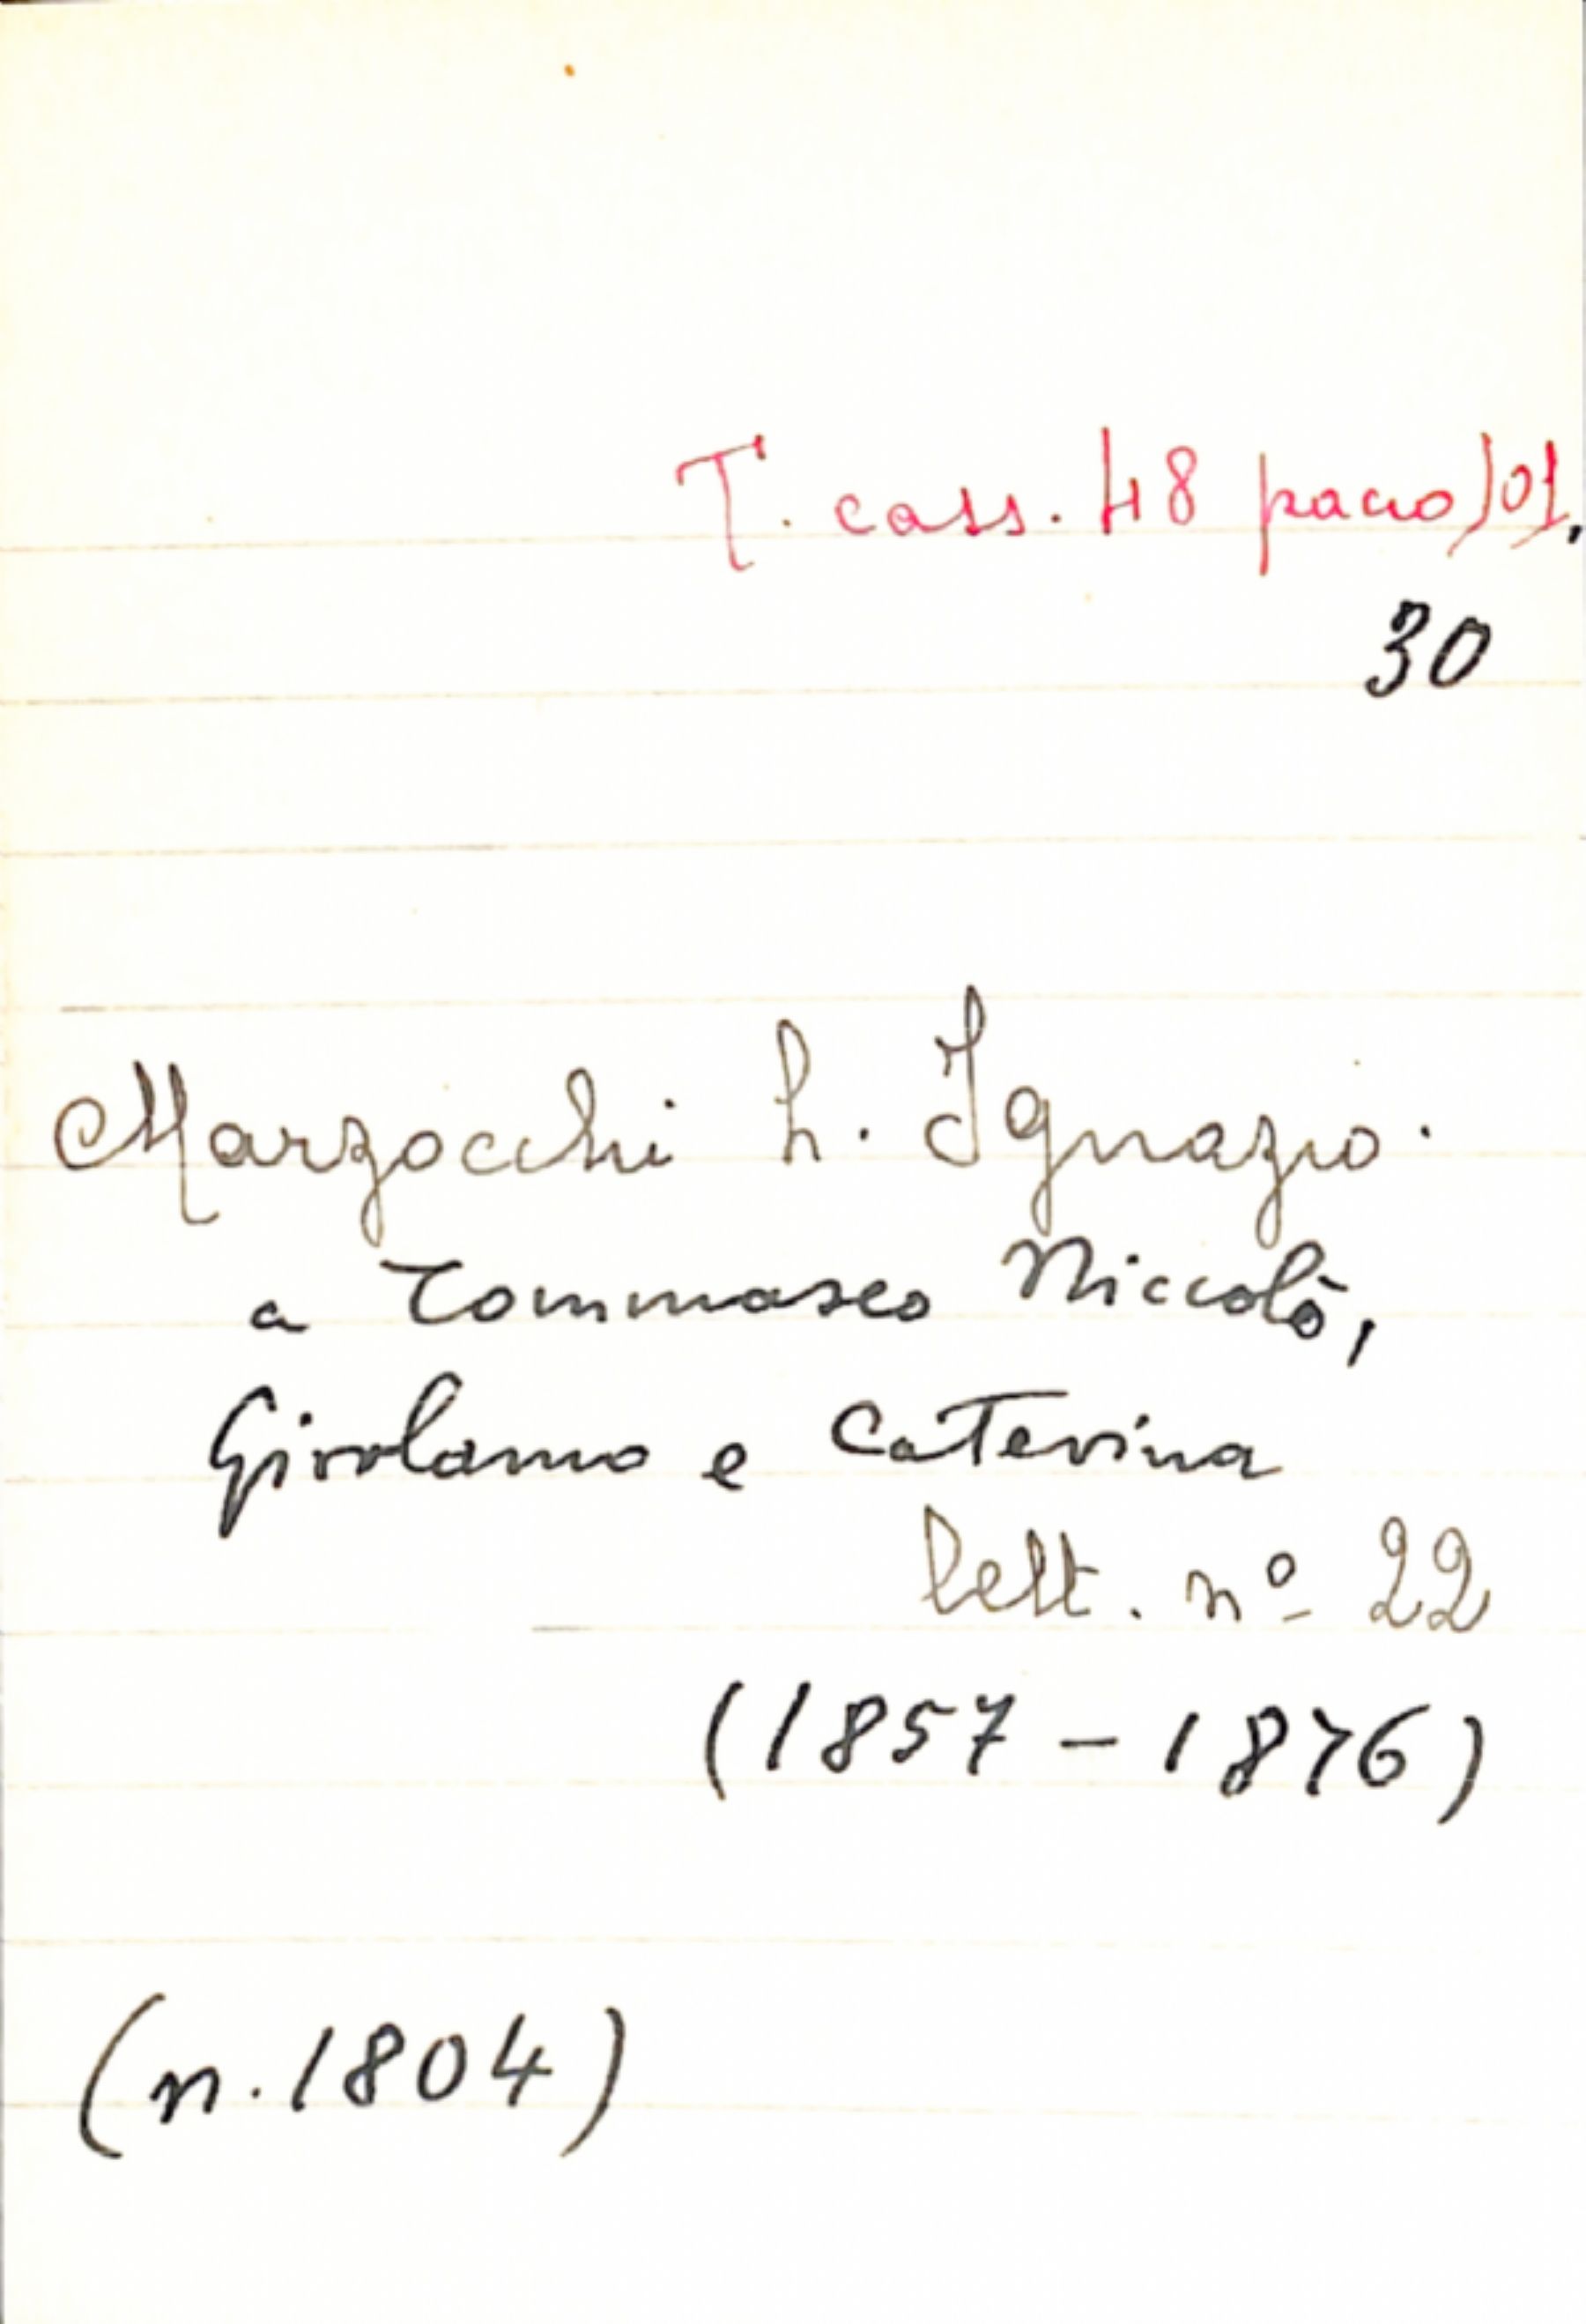 T. cass. 48 pacco 101,
30
Marzocchi L. Ignazio.
a Tommaseo Niccolò,
Girolamo e Caterina
lett. nº 22
(1857-1876)
(n. 1804)